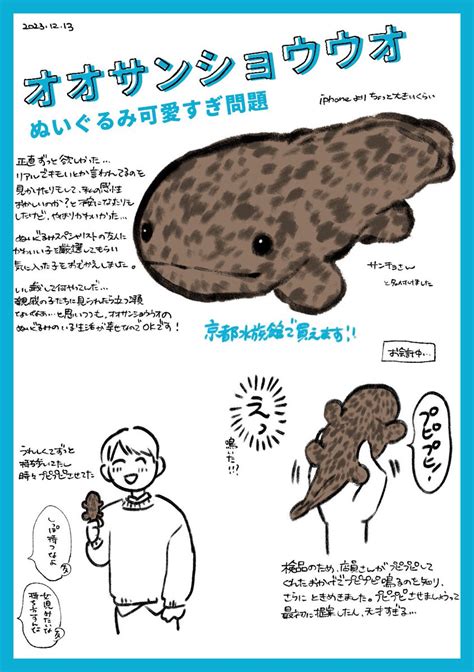 2023.12.13
オオサンショウウオ
ぬいぐるみ可愛すぎ問題
iphoneよりちょっと大きいくらい
正直ずっと欲しかった…
リアルでキモいとか言われてるのを
見かけたりもして、私の感性
おかしいのか?と不安になったりも
したけど、やっぱりかわいかった…
ぬいぐるみスペシャリストの友人に
かわいい子を厳選してもらい
気に入った子をおむかえしました。
いい歳して何やってんだ…
親戚の子たちに見られたら立つ瀬
ないぞ…と思いつつも、オオサンショウウオの
ぬいぐるみのいる生活が幸せなのでOKです!
サンチョさん
と名付けました
京都水族館で買えます!!
お会計中…
えっ
鳴いた!!?
プピプピッ!
うれしくてずっと
時々プピプピさせてた
しっぽ持つなよ
友
女児みたいな
持ち方すんな
友
検品のため、店員さんがプピプピして
くれたおかげでプピプピ鳴るのを知り、
さらにときめきました。プピプピさせましょうって
最初に提案した人、天才すぎる…